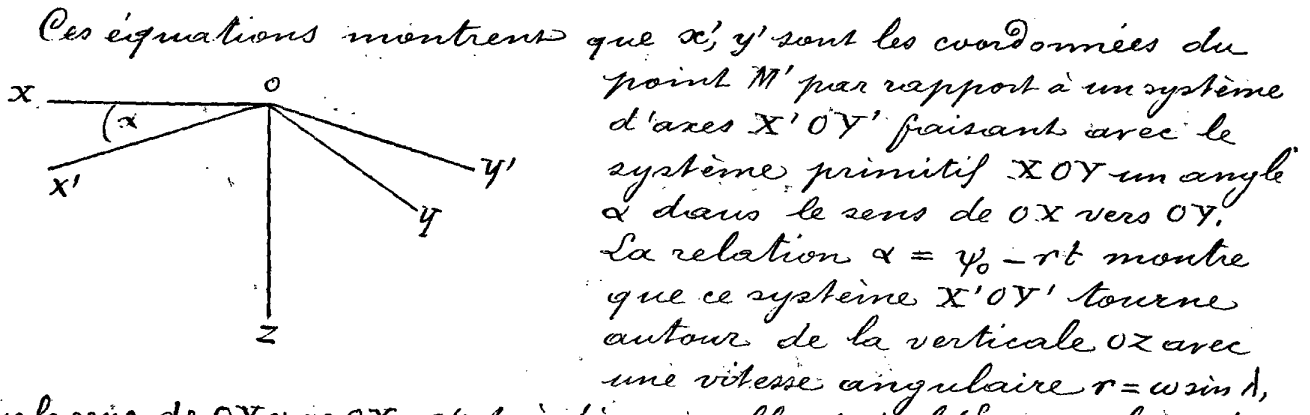 Ces équations montrent que x', y' sont les coordonnées du
point M' par rapport à un système
d'axes X'OY' faisant avec le
système primitif XOY un angle
α dans le sens de OX vers OY.
La relation α = ψ₀ - rt montre
que ce système X'OY' tourne
autour de la verticale OZ avec
une vitesse angulaire r = ω sin λ,
X
O
α
X'
Y'
Y
Z